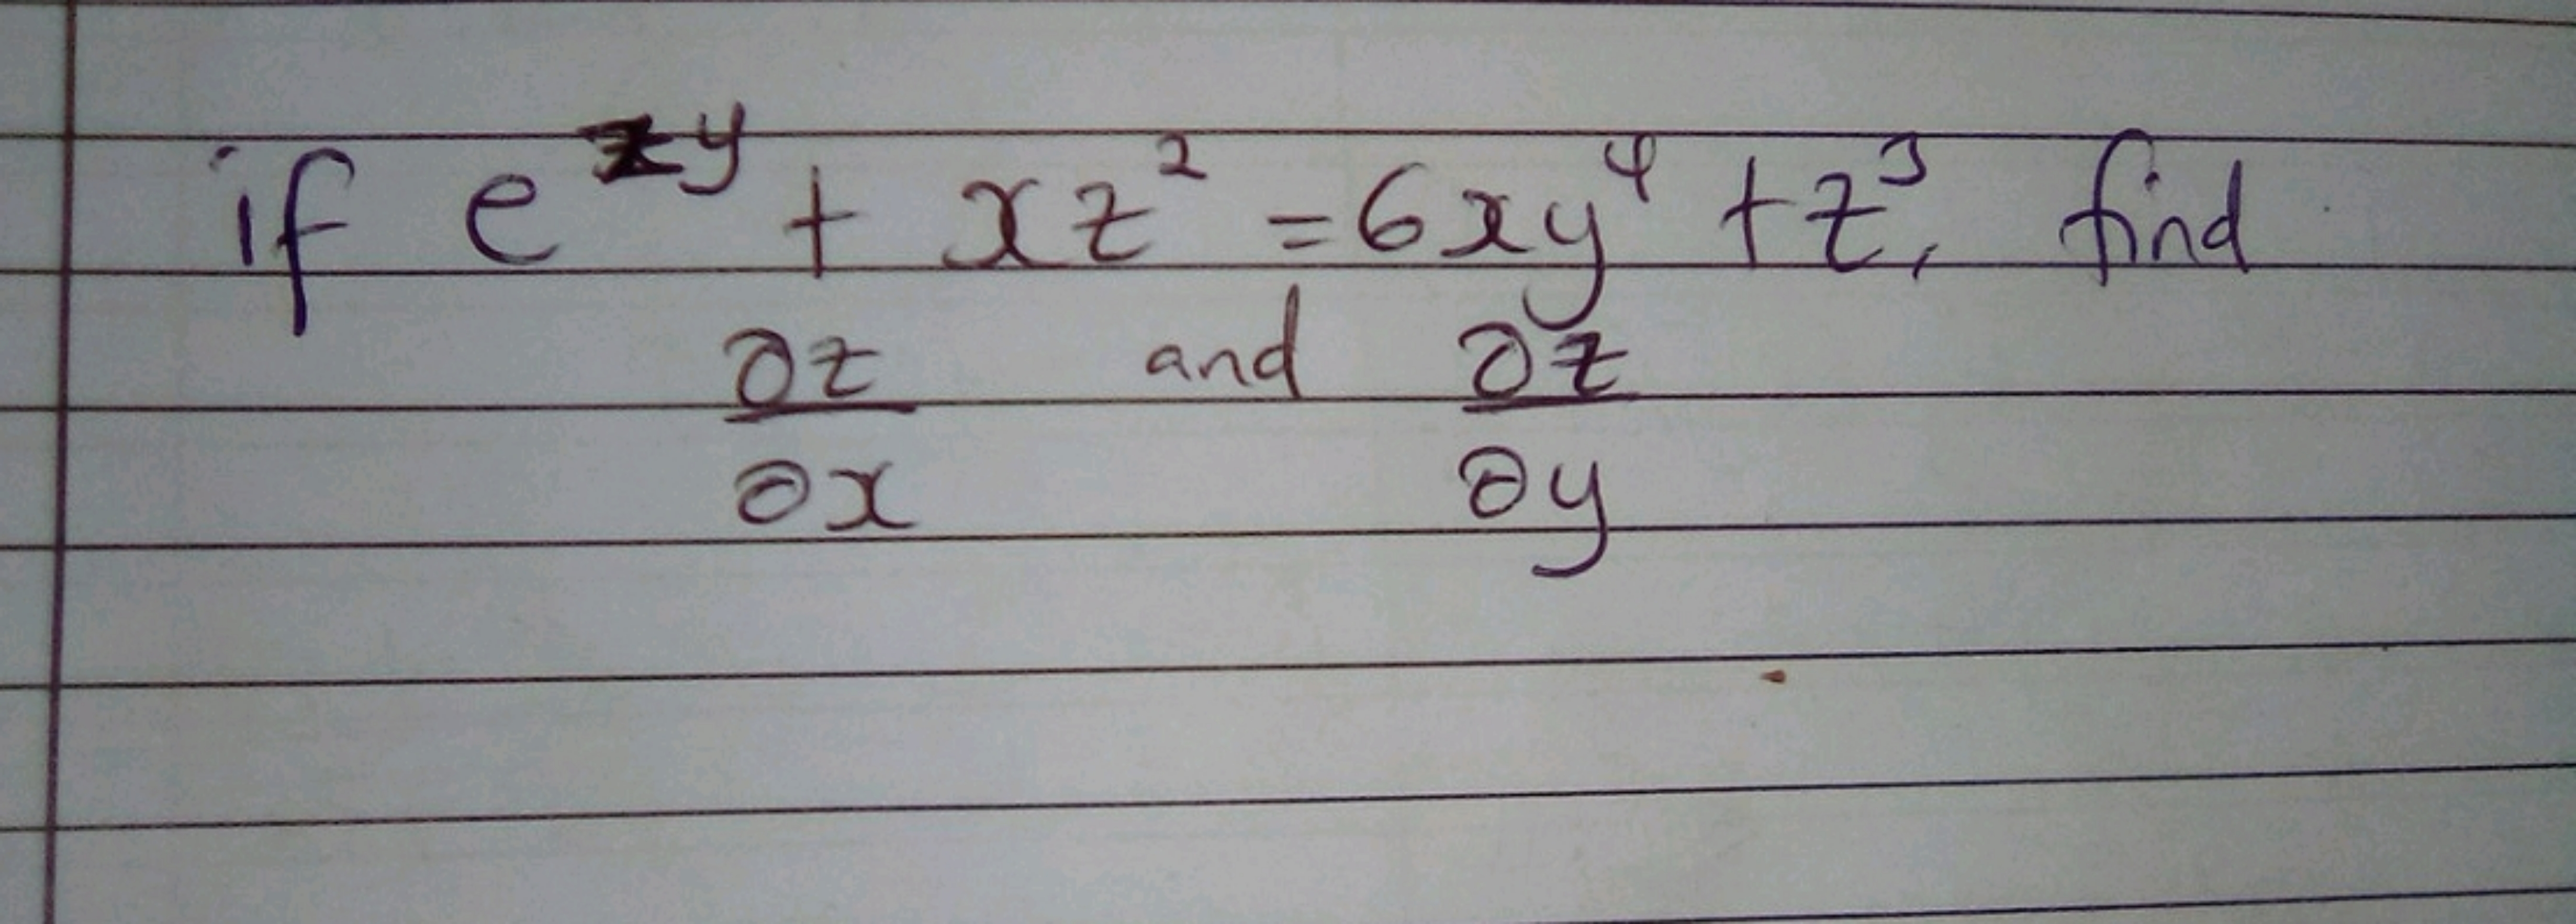 if e^{zy} + xz² = 6xy⁴ + z³, find
∂z/∂x and ∂z/∂y